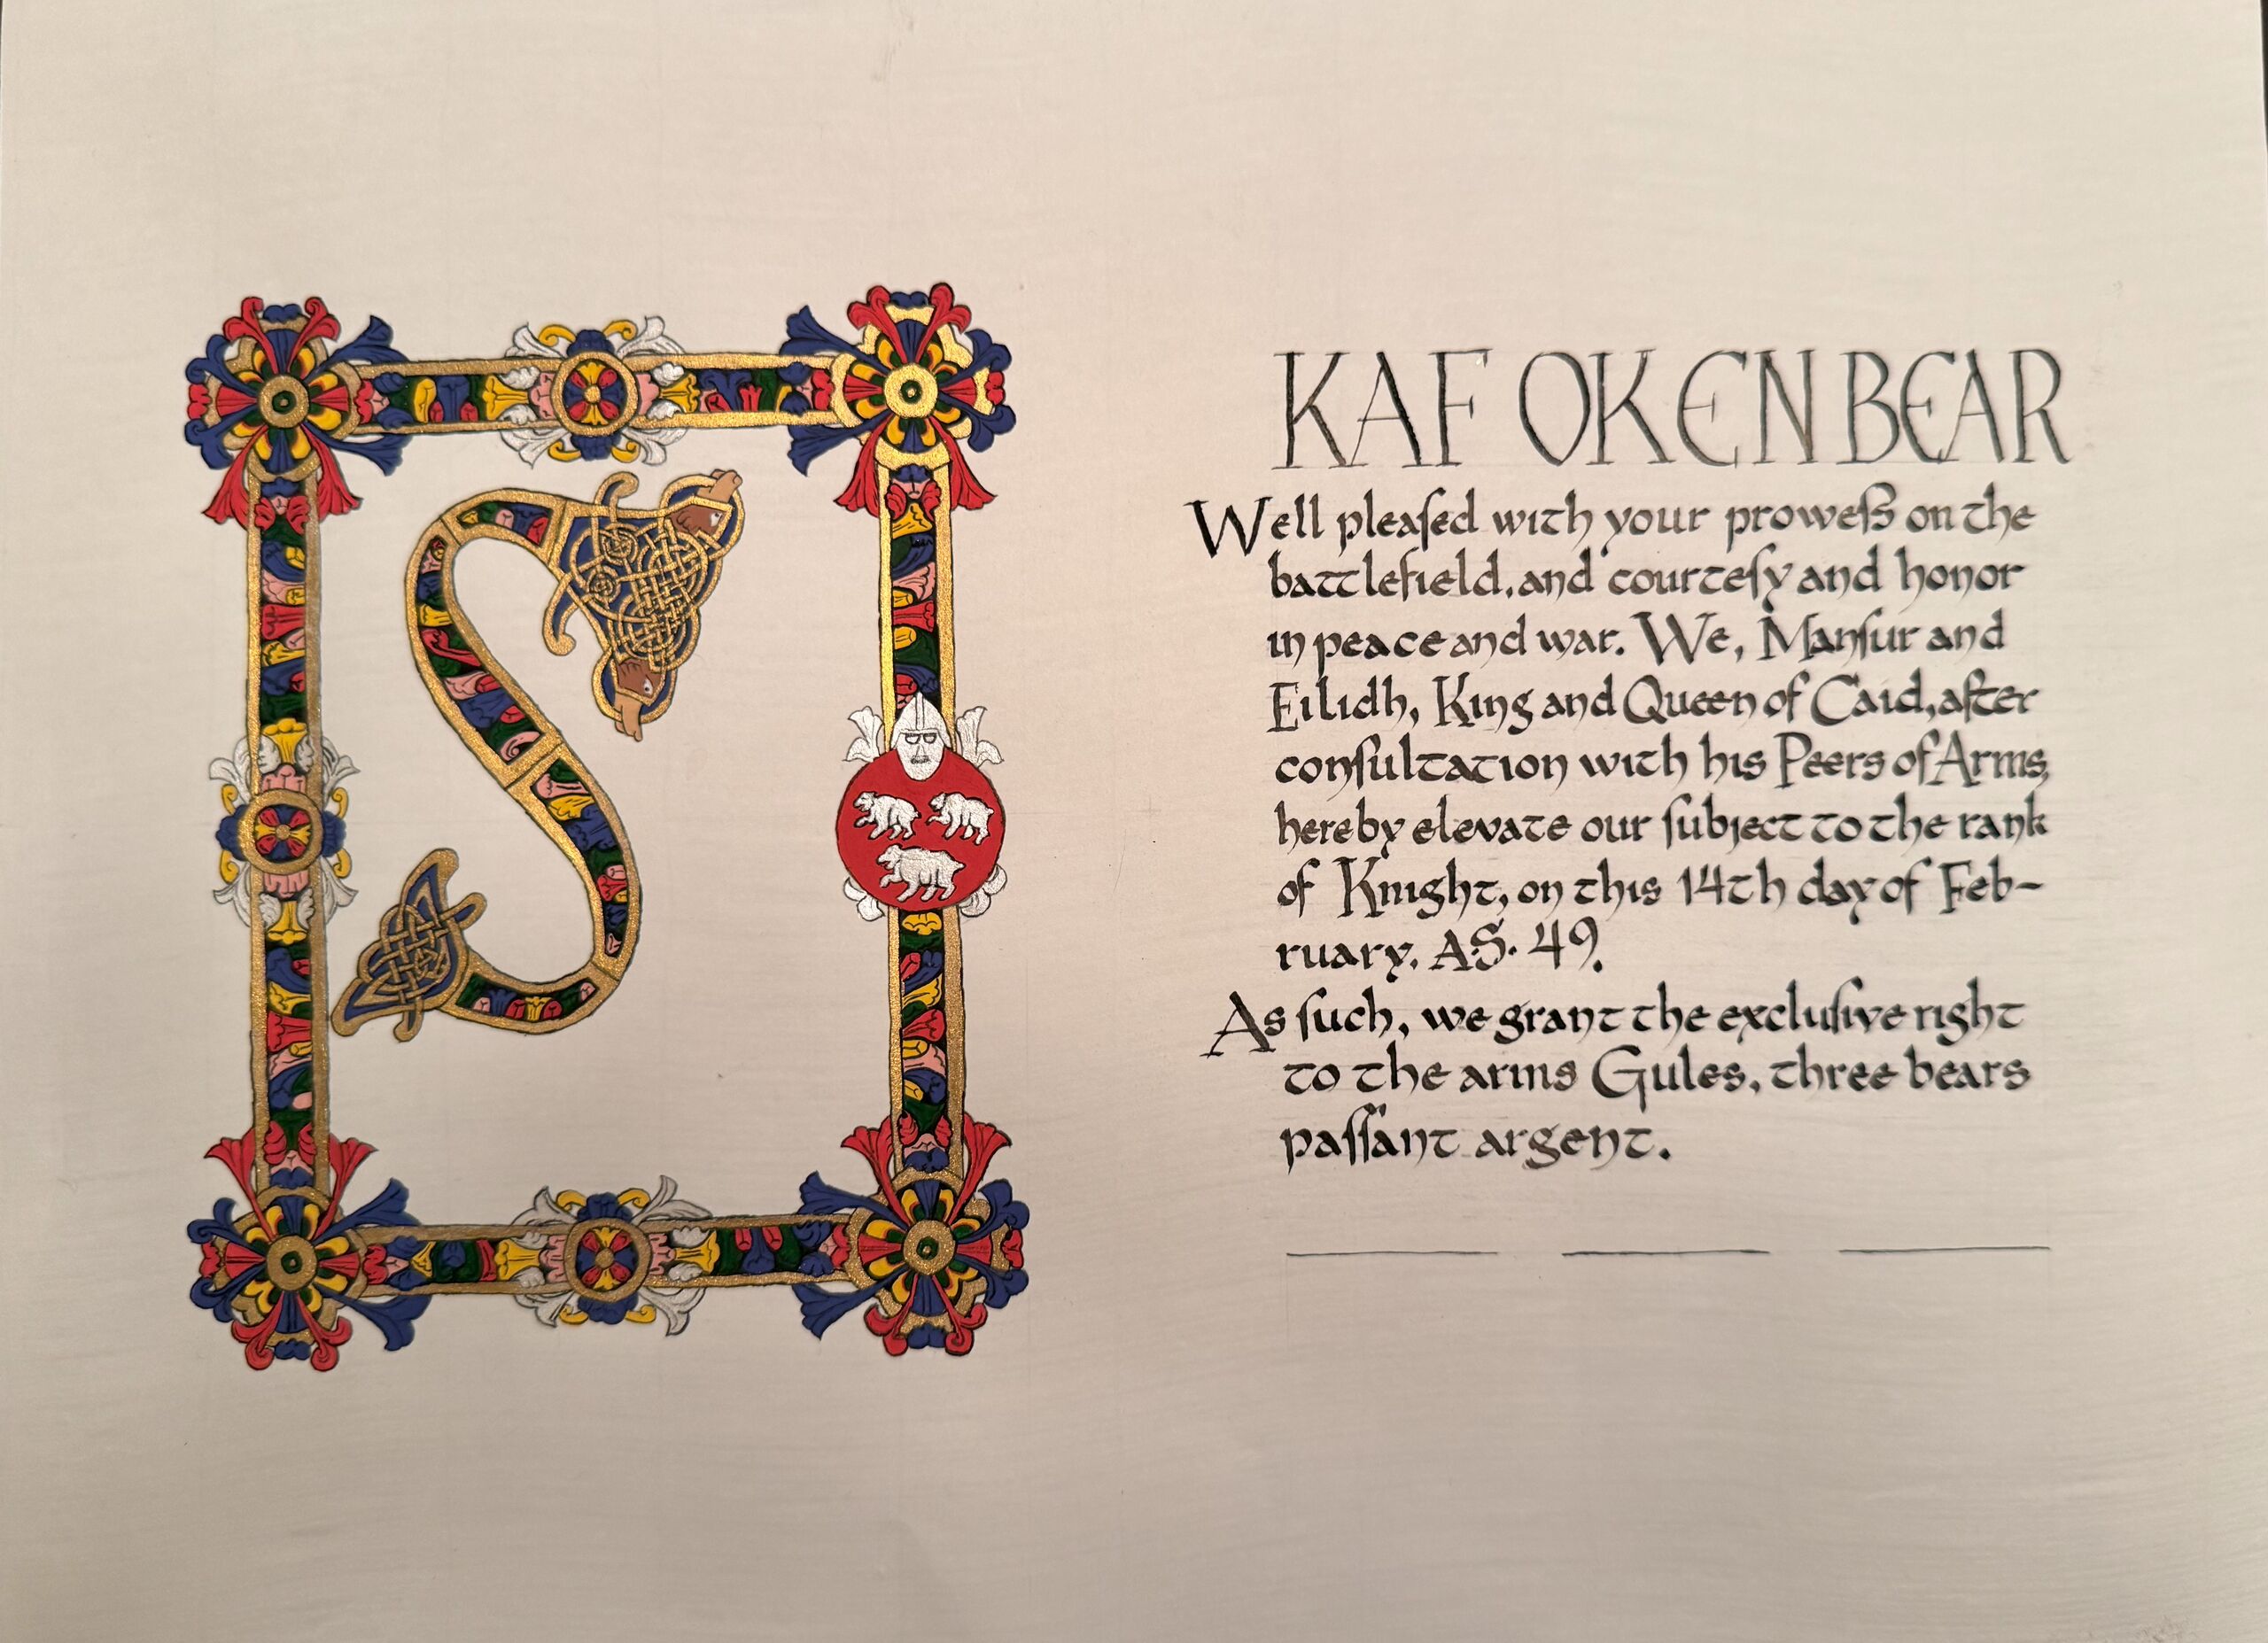 S
KAF OKENBEAR
Well pleaſed with your proweſs on the
battlefield, and courteſy and honor
in peace and war. We, Manſur and
Eilidh, King and Queen of Caid, after
conſultation with his Peers of Arms,
hereby elevate our ſubject to the rank
of Knight, on this 14th day of Feb-
ruary. A.S. 49.
As ſuch, we grant the excluſive right
to the arms Gules, three bears
paſſant argent.